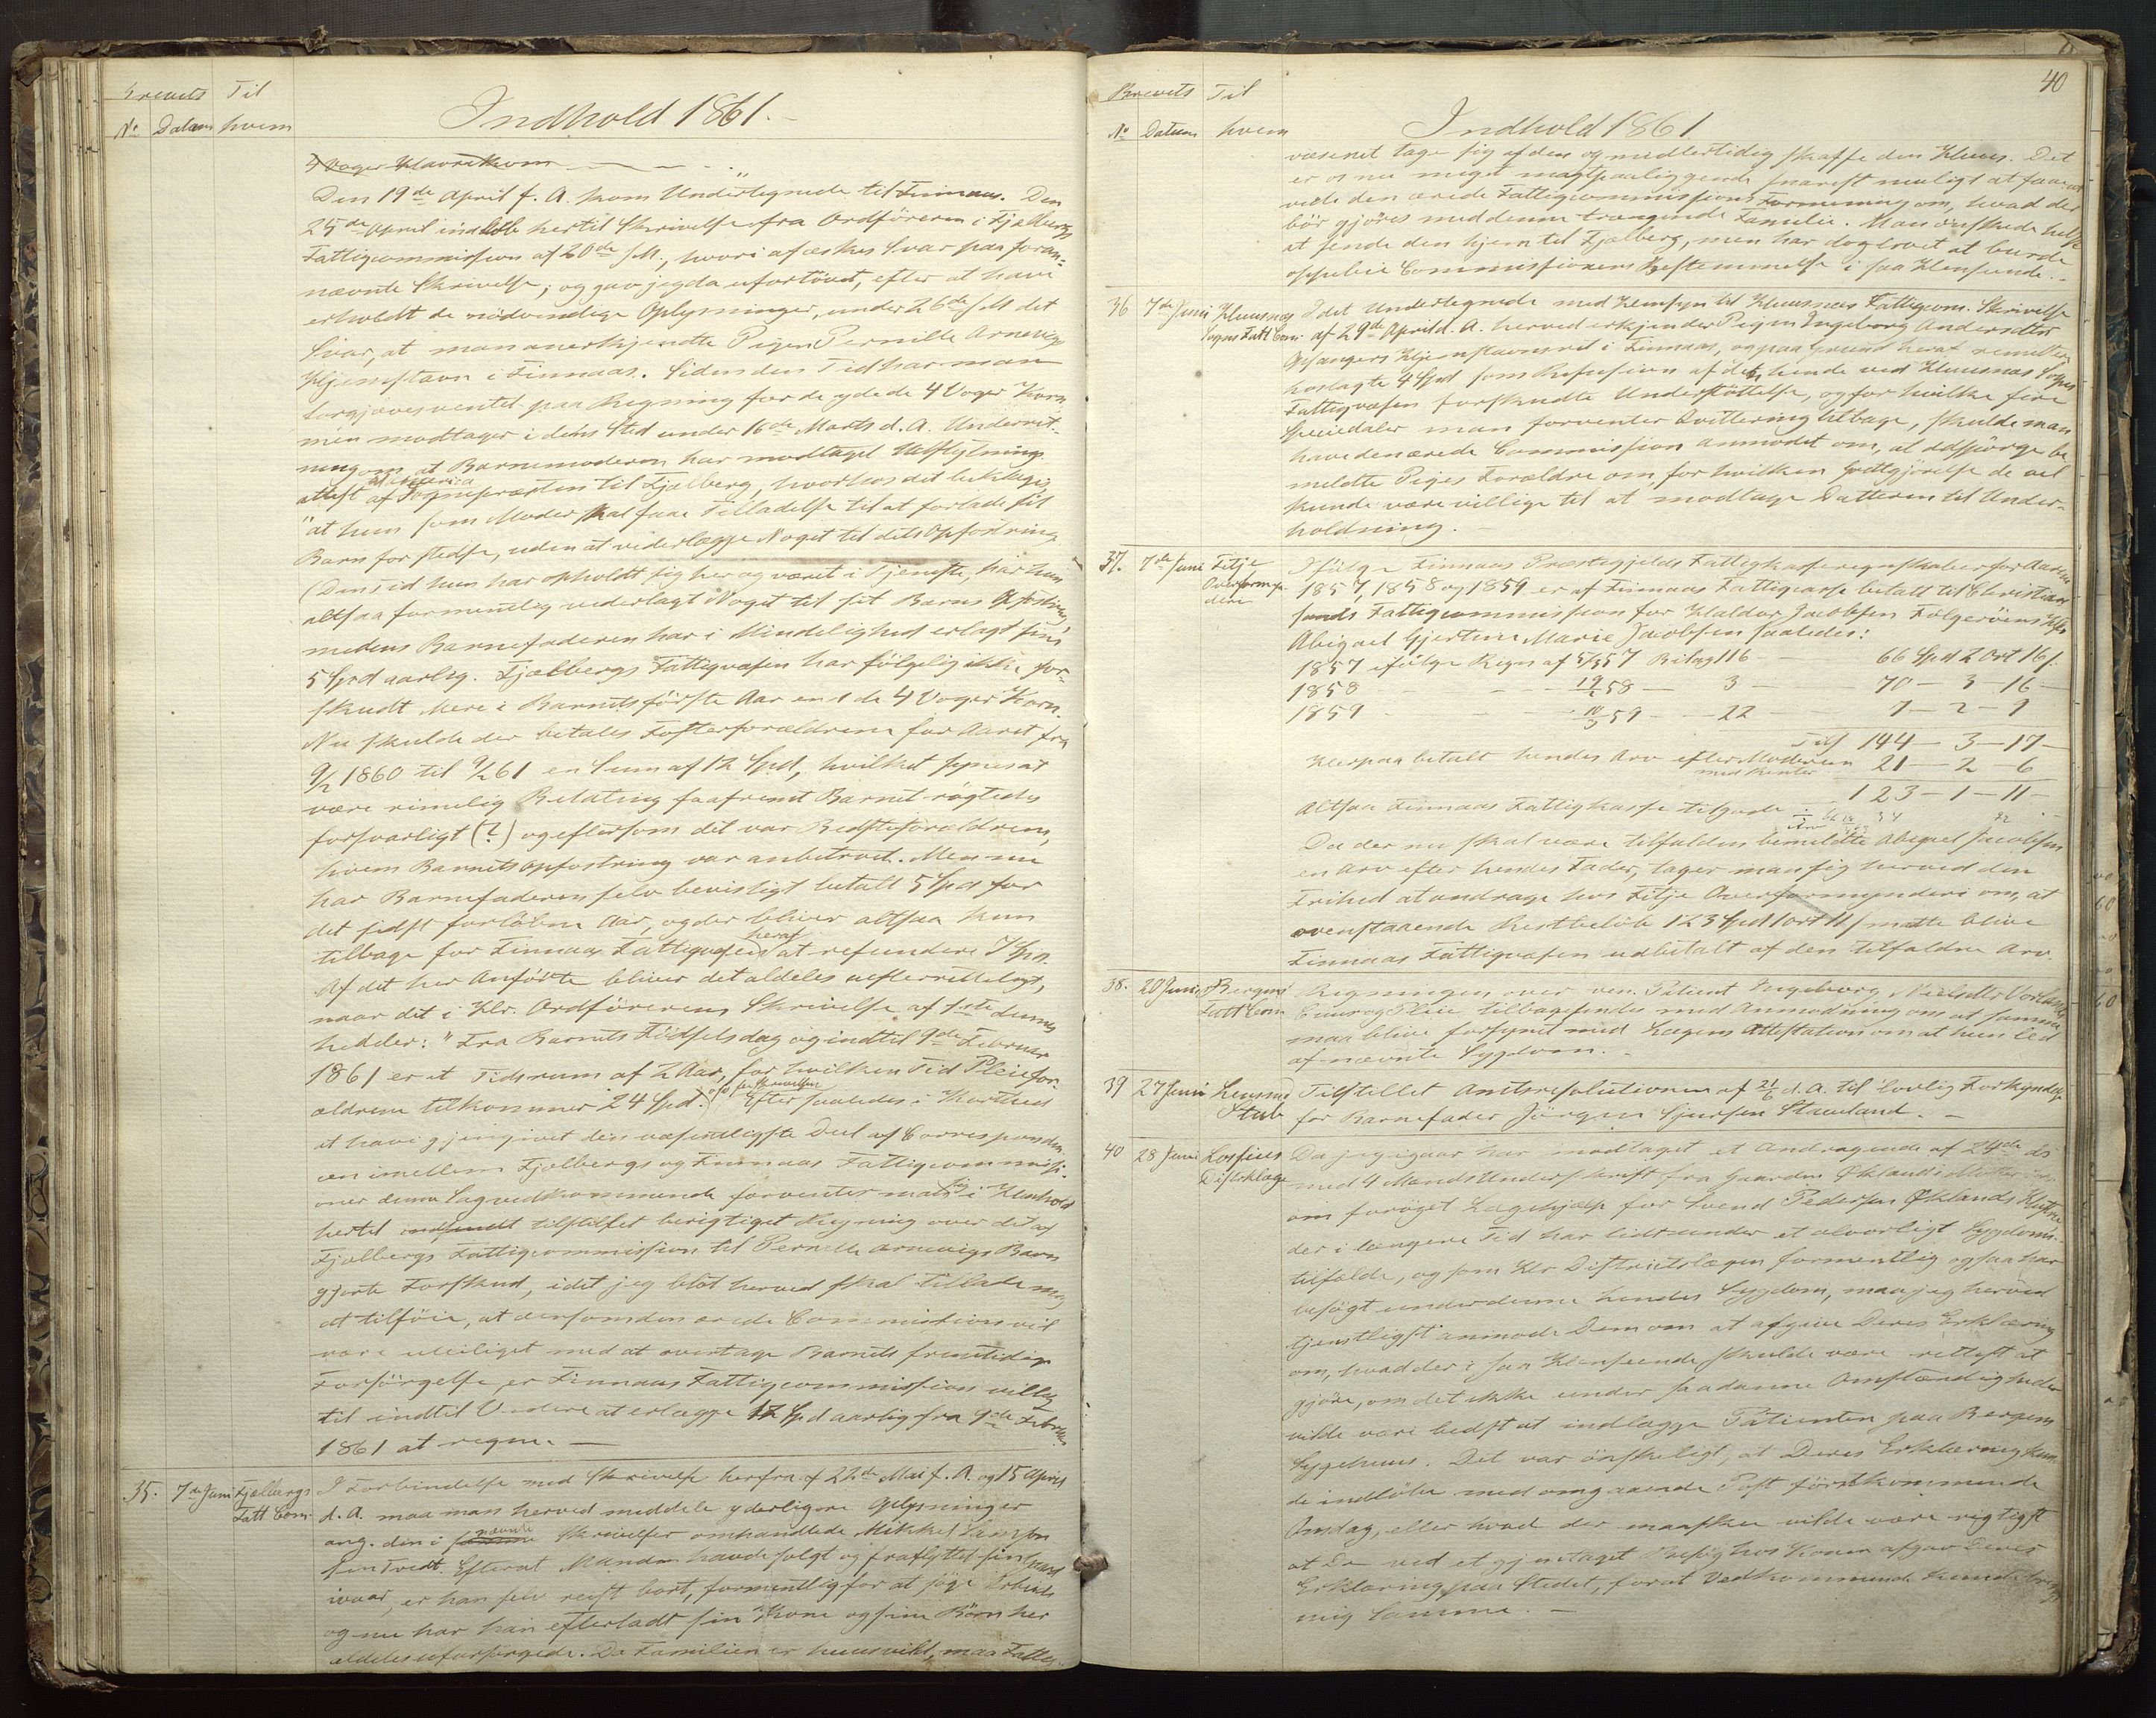 Brevets Til
No Datum hvem
Indhold 1861.
4 Voger Havrekorn
Den 19de April f. A. kom Undertegnede til Finnaas. Den
25de April indløb hertil Skrivelse fra Ordføreren i Fjelbergs
Fattigcommission af 20de s.M., hvori afæskes Svar paa foran-
nævnte Skrivelse, og gav jeg da ufortövet, efter at have
erholdt de nödvendige Oplysninger, under 26de s.M. det
Svar, at man anerkjendte Pigen Pernille Arnevigs
Hjemstavn i Finnaas. Siden den Tid har man
forgjæves ventet paa Regning for de ydede 4 Voger Korn
men modtager i dens Sted under 16de Marts d. A. Underret-
ning om at Barnemoderen har modtaget Udflytnings
attest til America af Sognepræsten til Fjelberg, hvorhos det
"at hun som Moder skal faae Tilladelse til at forlade sit
Barn for stedse, uden at vederlægge Noget til dets Opfostring"
(Den Tid hun har opholdt sig her og været i Tjeneste, har hun
altsaa formentlig vederlagt Noget til sit Barns Opfostring)
medens Barnefaderen har i Mindelighed erlagt sine
5 Spd aarlig. Fjelbergs Fattigvæsen har fölgelig ikke for-
skudt Mere i Barnets förste Aar end de 4 Voger Korn.
Nu skulde der betales Fosterforældrene for Aaret fra
9/2 1860 til 9/2 61 en Sum af 12 Spd, hvilket synes at
være rimelig Betaling saafremt Barnet rögtedes
forsvarligt (?) og eftersom det var Bedsteforældrene,
hvem Barnets Opfostring var anbetroet. Men nu
har Barnefaderen selv bevisligt betalt 5 Spd for
det sidst forløbne Aar, og der bliver altsaa kun
tilbage for Finnaas Fattigvæsen heraf at refundere 7 Spd.
Af det her Anförte bliver det aldeles uefterretteligt,
naar det i Hr. Ordförerens Skrivelse af 1ste dennes
hedder: "Fra Barnets Födselsdag og indtil 9de Februar
1861 er et Tidsrum af 2 Aar, for hvilken Tid Pleiefor-
ældrene tilkommer 24 Spd." Efter saaledes i Korthed
at have gjengivet den væsentligste Deel af Corresponden-
cen imellem Fjelbergs og Finnaas Fattigcommissi-
oner denne Sag vedkommende forventer man sig i Henhold
hertil indsendt tilstillet berigtiget Regning over det af
Fjelbergs Fattigcommission til Pernille Arnevigs Barn
gjorte Forskud, idet jeg blot herved skal tillade mig
at tilföie, at dersom den ærede Commission vil
være uleiliget med at overtage Barnets fremtidige
Forsörgelse, er Finnaas Fattigcommission villig
til indtil Videre at erlægge 12 Spd aarlig fra 9de Februar
1861 at regne. —
35. 7de Juni Fjelbergs Fatt Com. I Forbindelse med Skrivelse herfra af 22de Mai f. A. og 15 April
d. A. maa man herved meddele yderligere Oplysninger
ang. den i nævnte Skrivelser omhandlede Mikkel Larsen
Tvedt. Efterat Manden havde solgt og fraflyttet sin
, er han selv reist bort, formentlig for at søge Arbeide
og nu har han efterladt sin Kone og sine Börn her
aldeles uforsørgede. Da Familien er huusvild, maa Fattig-
40
Brevets Til
No Datum hvem
Indhold 1861.
væsenet tage sig af den og midlertidig skaffe den Huus. Det
er os nu meget magtpaaliggende snarest muligt at faae at
vide den ærede Fattigcommissions Formening om, hvad der
bör gjöres med denne trængende Familie. Man önskede helst
at sende den hjem til Fjelberg, men har dog troet at burde
oppebie Commissionens Bestemmelse i saa Henseende. -
36 7de Juni Huusnæs Sogns Fatt Com. Idet Undertegnede med Hensyn til Huusnæs Fattigcom. Skrivelse
af 29de April d. A. herved erkjender Pigen Ingeborg Andersdtter
Gjsangers Hjemstavnsret i Finnaas, og paa Grund heraf remitterer
hoslagte 4 Spd som Refusion af den hende ved Huusnæs Sogns
Fattigvæsen forskudte Understöttelse, og for hvilke fire
Speciedaler man forventer Qvittering tilbage, skulde man
have den ærede Commission anmodet om, at adspörge be-
meldte Piges Forældre om, for hvilken Godtgjörelse de vel
kunde være villige til at modtage Datteren til Under-
holdning. -
37. 7de Juni Fitje Overformyn- deri Ifölge Finnaas Præstegjelds Fattigkasseregnskaber for Aarene
1857, 1858 og 1859 er af Finnaas Fattigcasse betalt til Christian-
sunds Fattigcommission for Haldor Jacobsen Fölgeröens
Abigael Gjertine Marie Jacobsen saaledes:
1857 ifölge Regn. af 5/3 57 Bilag 116 — 66 Spd 2 Ort 16 s.
1858 — 19/2 58 — 3 — 70 — 3 — 16 —
1859 — 10/3 59 — 22 — 7 — 2 — 9
Tils. 144 — 3 — 17 —
Herpaa betalt hendes Arv efter Moderen med Renter 21 — 2 — 6
Altsaa Finnaas Fattigkasse tilgode 123 — 1 — 11 —
Da der nu skal være tilfalden bemeldte Abigael Jacobsen
en Arv efter hendes Fader, tager man sig herved den
Frihed at andrage hos Fitje Overformynderi om, at
ovenstaaende Restbelöb 123 Spd 1 ort 11 s maatte blive
Finnaas Fattigvæsen udbetalt af den tilfaldne Arv.
38. 20 Juni Bergens Fatt Com Regningen over ven. Patient Ingeborg Nielsdtter
Cuur og Pleie tilbagesendes med Anmodning om at samme
maa blive forsynet med Lægens Attestation om at hun led
af nævnte Sygdom. -
39 27 Juni Lensmd Stub Tilstillet Amtsresolutionen af 21/6 d. A. til lovlig Forkyndelse
for Barnefader Jörgen Sjursen Staveland. —
40 28 Juni Losfius Distrklæge Da jeg igaar har modtaget et Andragende af 24de ds
med 4 Mands Underskrift fra Gaarden Økland i
om foröget Lægehjælp for Svend Pedersen Øklands Hustru
der i længere Tid har lidt under et alvorligt Sygdoms-
tilfælde, og som Hr Districtslægen formentlig ogsaa har
besögt under denne hendes Sygdom, maa jeg herved
tjenstligst anmode Dem om at afgive Deres Erklæring
om, hvad der i saa Henseende skulde være rettest at
gjöre, om det ikke under saadanne Omstændigheder
vilde være bedst at indlægge Patienten paa Bergens
Sygehuus. Det var önskeligt, at Deres Erklæring kun-
de indløbe med omgaaende Post førstkommende
Onsdag, eller hvad der maaskee vilde være rigtigst
at De ved et gjentaget Besög hos Konen afgav Deres
Erklæring paa Stedet, forat Vedkommende kunde bringe
mig Samme. —